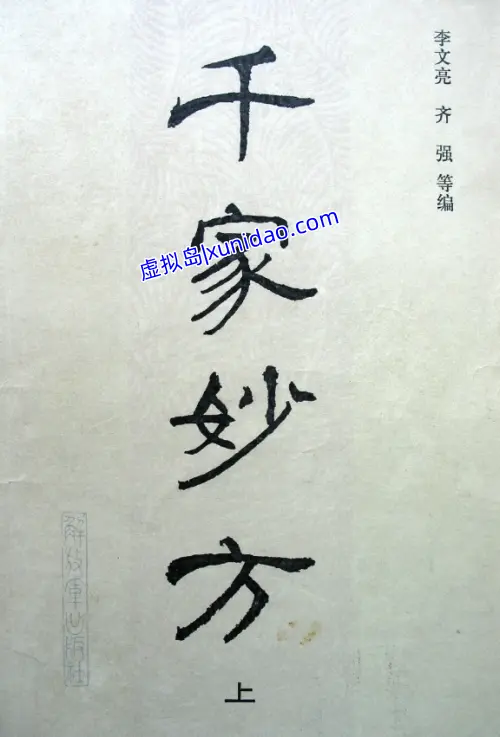 李文亮 齐强等编
千家妙方
虚拟岛|xunidao.com
解放军出版社
上